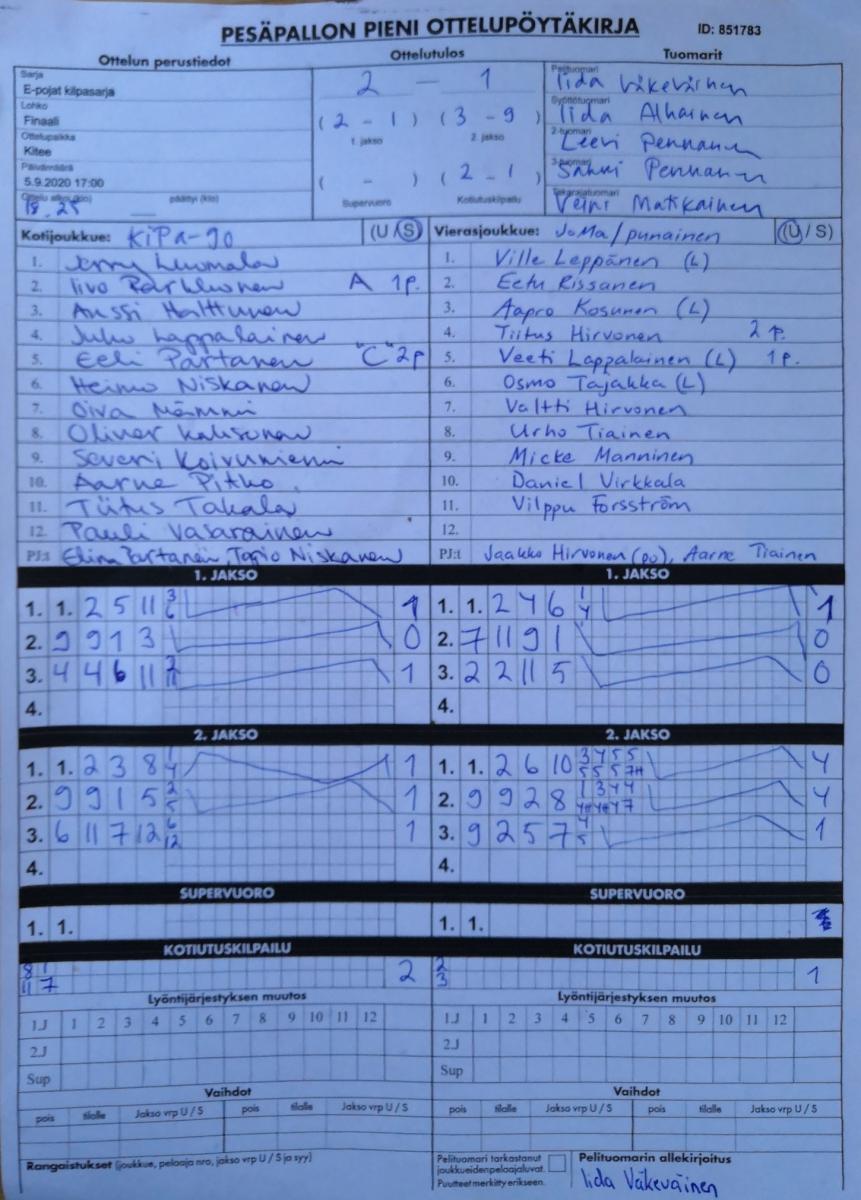 PESÄPALLON PIENI OTTELUPÖYTÄKIRJA ID: 851783
Ottelun perustiedot Ottelutulos Tuomarit
Sarja
E-pojat kilpasarja
Lohko
Finaali
Ottelupaikka
Kitee
Päivämäärä
5.9.2020 17:00
Ottelu alkoi (klo) päättyi (klo)
18.25
2 — 1
(2 - 1) (3 - 9)
1. jakso 2. jakso
( - ) (2 - 1)
Supervuoro Kotiutuskilpailu
Pelituomari
Iida Väkeväinen
Syöttötuomari
Iida Alhainen
2-tuomari
Leevi Pennanen
3-tuomari
Pennanen
Takarajatuomari
Veini Matikainen
Kotijoukkue: KiPa-90 (U / S)
1. Jerry Luomala
2. Iivo Parkkonen A 1p.
3. Anssi Halttunen
4. Juho Lappalainen
5. Eeli Partanen "C" 2p
6. Heimo Niskanen
7. Oiva Nämmi
8. Oliver
9. Severi Koivuniemi
10. Aarne Pitko
11. Tiitus Takala
12. Pauli Vasarainen
PJ:t Elina Partanen, Tapio Niskanen
Vierasjoukkue: JoMa/punainen (U / S)
1. Ville Leppänen (L)
2. Eetu Rissanen
3. Aapro Kosunen (L)
4. Tiitus Hirvonen 2 p.
5. Veeti Lappalainen (L) 1p.
6. Osmo Tajakka (L)
7. Valtti Hirvonen
8. Urho Tiainen
9. Micke Manninen
10. Daniel Virkkala
11. Vilppu Forsström
12.
PJ:t Jaakko Hirvonen (po), Aarne Tiainen
1. JAKSO
1. 1. 2 5 11 3/6 1
2. 9 9 1 3 0
3. 4 4 6 11 2/11 1
4.
1. JAKSO
1. 1. 2 4 6 1/4 1
2. 7 11 9 1 0
3. 2 2 11 5 0
4.
2. JAKSO
1. 1. 2 3 8 1/4 1
2. 9 9 1 5 2/5 1
3. 6 11 7 12 6/12 1
4.
2. JAKSO
1. 1. 2 6 10 3/5 4/5 5/5 5/7H 4
2. 9 9 2 8 1/4H 3/4H 4/4 4/7 4
3. 9 2 5 7 4/5 1
4.
SUPERVUORO
1. 1.
SUPERVUORO
1. 1.
KOTIUTUSKILPAILU
8/11 1/7 2
KOTIUTUSKILPAILU
2/3 1
Lyöntijärjestyksen muutos
1.J 1 2 3 4 5 6 7 8 9 10 11 12
2.J
Sup
Lyöntijärjestyksen muutos
1.J 1 2 3 4 5 6 7 8 9 10 11 12
2.J
Sup
Vaihdot
pois tilalle Jakso vrp U / S pois tilalle Jakso vrp U / S
Vaihdot
pois tilalle Jakso vrp U / S pois tilalle Jakso vrp U / S
Rangaistukset (joukkue, pelaaja nro, jakso vrp U / S ja syy)
Pelituomari tarkastanut
joukkueiden pelaajaluvat.
Puutteet merkitty erikseen.
Pelituomarin allekirjoitus
Iida Väkeväinen